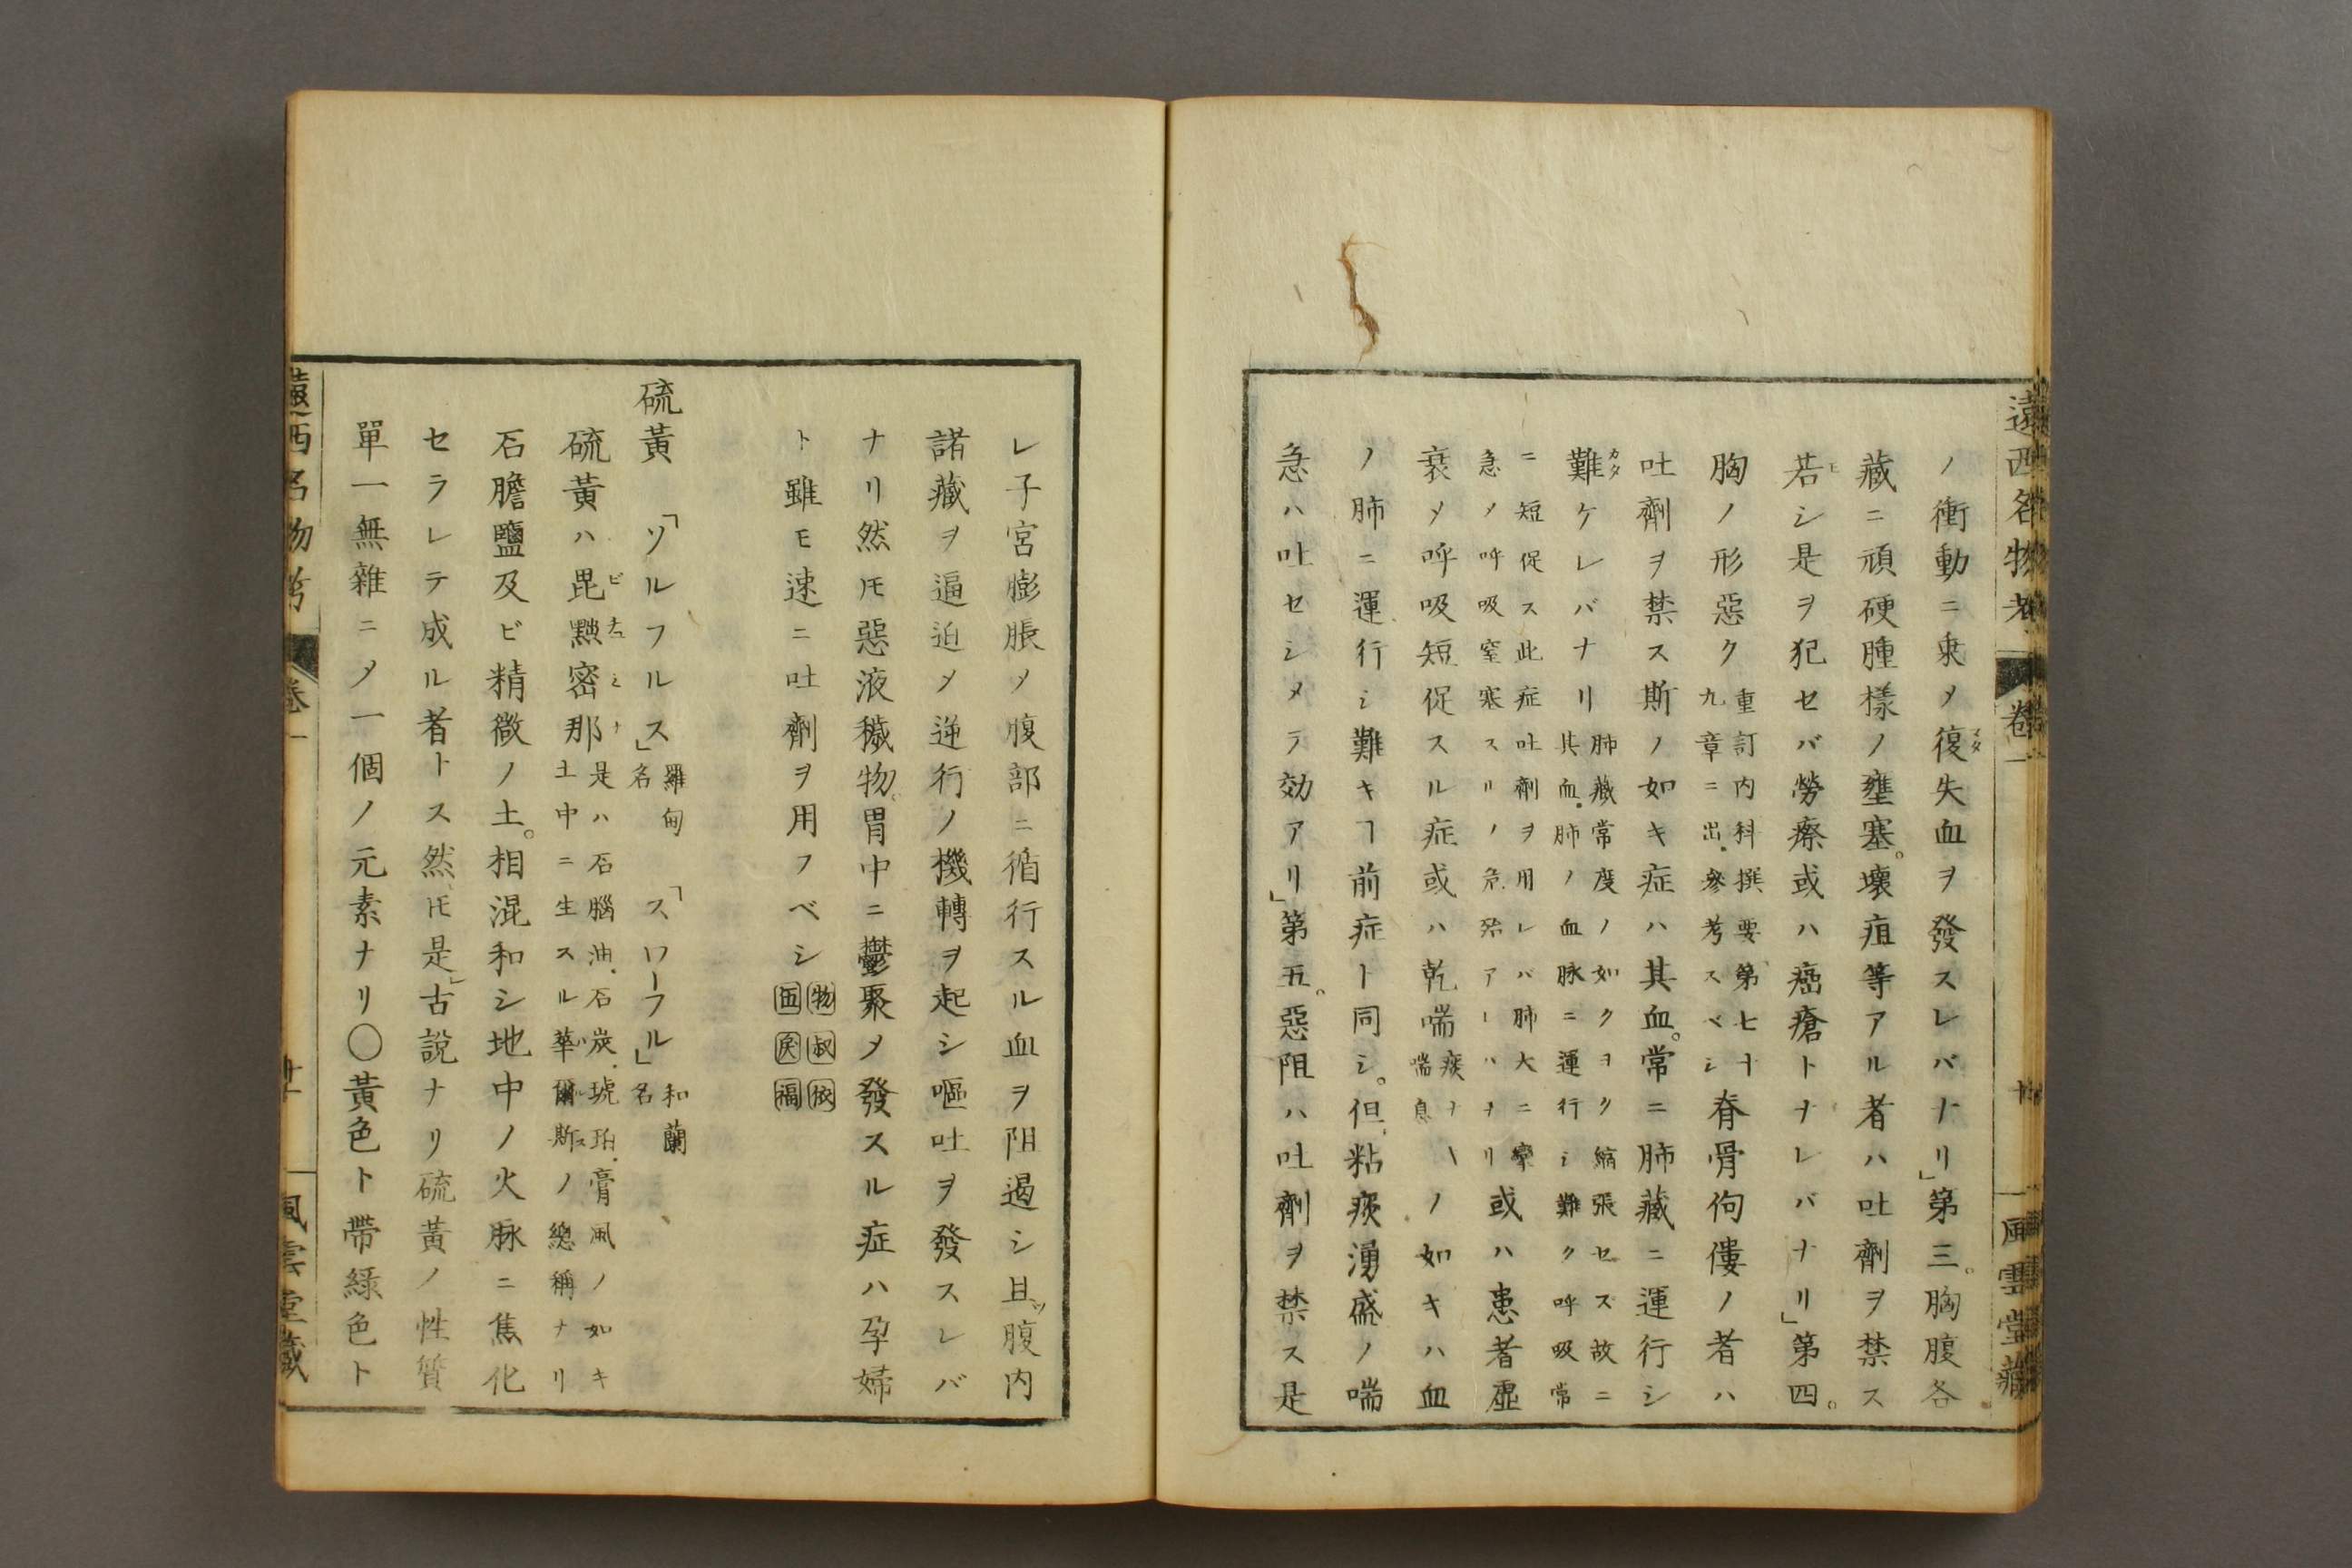 遠西名物考 卷一 風雲堂藏
ノ衝動ニ乗〆復マタ失血ヲ發スレバナリ」第三。胸腹各
藏ニ頑硬腫様ノ壅塞。壊疽等アル者ハ吐劑ヲ禁ス
若モシ是ヲ犯セバ勞瘵或ハ癌瘡トナレバナリ」第四。
胸ノ形惡ク重訂内科撰要第七十九章ニ出.參考スベシ脊骨佝僂ノ者ハ
吐劑ヲ禁ス斯ノ如キ症ハ其血。常ニ肺藏ニ運行シ
難カタケレバナリ肺藏常度ノ如クヲクク縮張セス故ニ其血.肺ノ血脉ニ運行シ難ク呼吸常
ニ短促ス此症吐劑ヲ用レバ肺大ニ攣急〆呼吸窒塞スリノ危殆アーハナリ或ハ患者虛
衰〆呼吸短促スル症或ハ乾喘痰ナー喘息ノ如キハ血
ノ肺ニ運行シ難キヿ前症ト同シ。但粘痰湧盛ノ喘
急ハ吐セシメテ効アリ」第五。惡阻ハ吐劑ヲ禁ス是
レ子宮膨脹〆腹部ニ循行スル血ヲ阻遏シ且ツ腹内
諸藏ヲ逼迫〆逆行ノ機轉ヲ起シ嘔吐ヲ發スレバ
ナリ然𪜈惡液穢物。胃中ニ鬱聚〆發スル症ハ孕婦
ト雖モ速ニ吐劑ヲ用フベシ物叔依西戻福
硫黃 「ソルフルス」羅甸名 「スワーフル」和蘭名
硫黃ハ毘黙密那是ハ石腦油.石炭.琥珀.膏風ノ如キ土中ニ生スル華爾斯ノ總稱ナリ
石膽鹽及ビ精微ノ土。相混和シ地中ノ火脉ニ焦化
セラレテ成ル者トス然𪜈是」古説ナリ硫黃ノ性質
單一無雜ニ〆一個ノ元素ナリ〇黃色ト帶緑色ト
遠西名物考 卷一 廿一 風雲堂藏